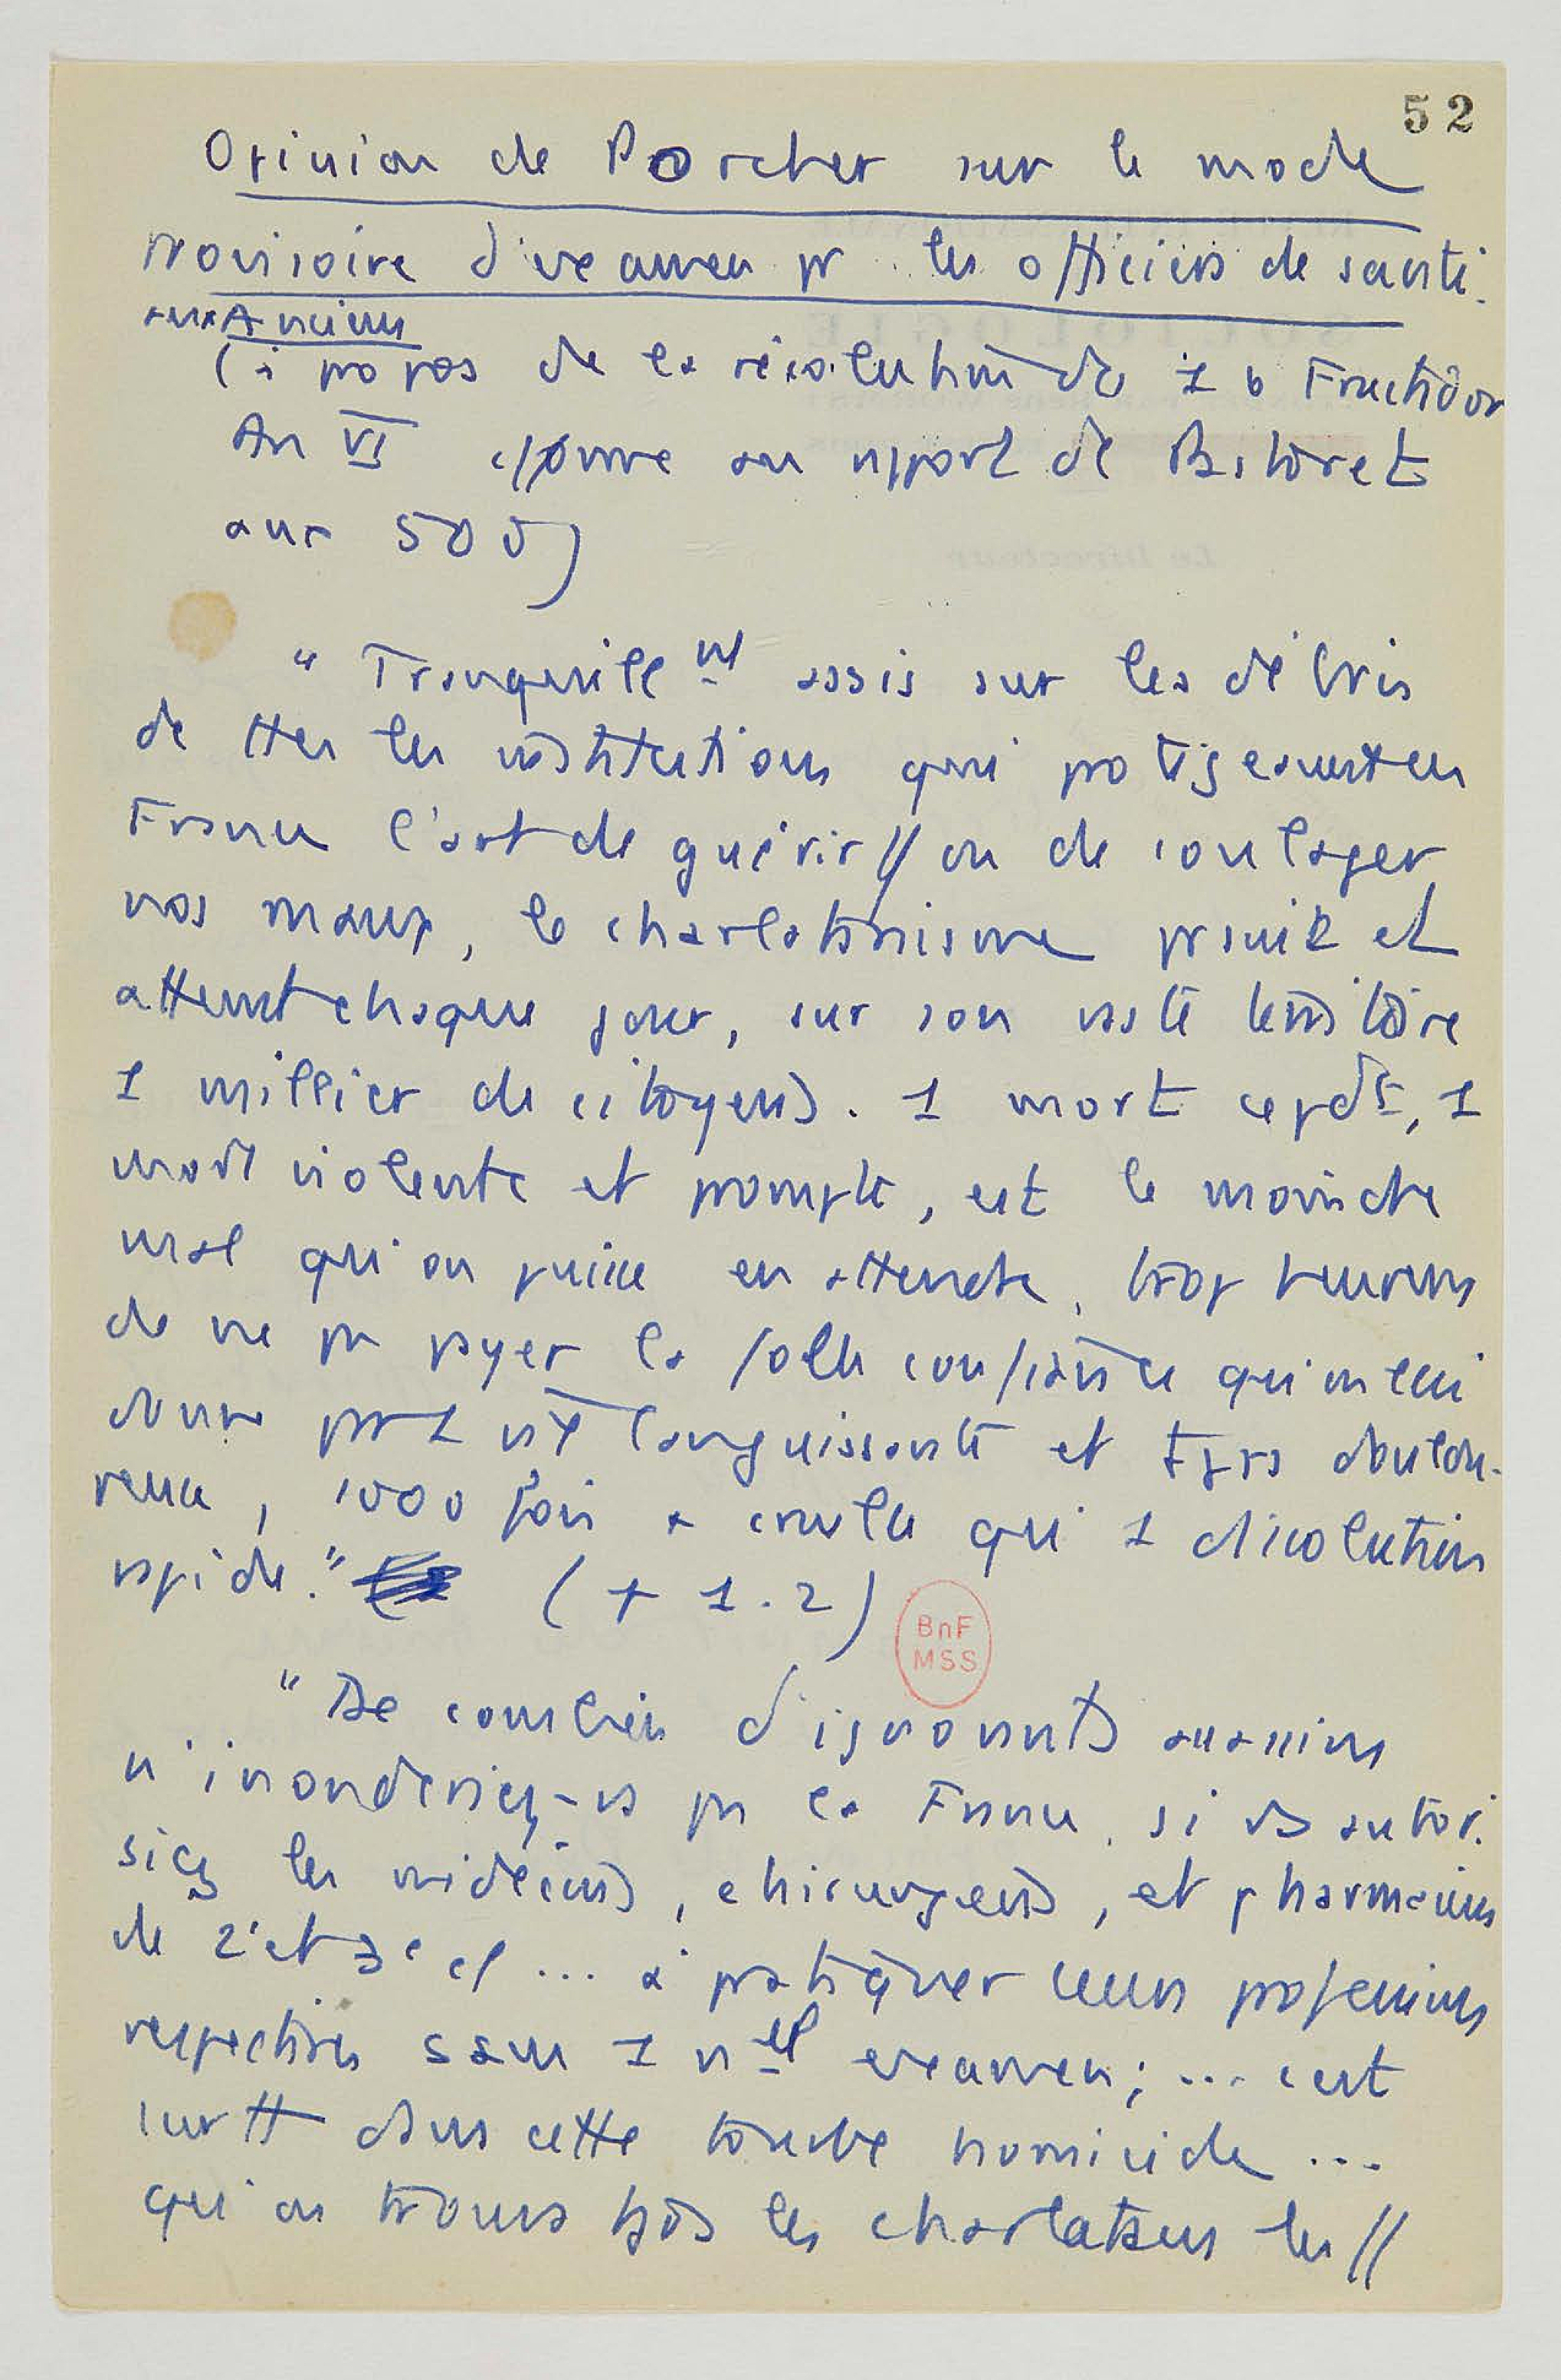 52
Opinion de Porcher sur le mode
provisoire d'examen pr les officiers de santé.
aux Anciens
(à propos de la résolution du 16 Fructidor
An VI comme au rapport de Pastoret
aux 500)
"Tranquille nt assis sur les débris
de ttes les institutions qui protégeaient en
France l'art de guérir // ou de soulager
nos maux, le charlatanisme poursuit et
atteint chaque jour, sur son vaste territoire
1 millier de citoyens. 1 mort cepdt, 1
mort violente et prompte, est le moindre
mal qu'on puisse en attendre, trop heureux
de ne pas payer la folle confiance qu'on lui
donne par 1 vie languissante et tjrs doulou-
reuse, 1000 fois + cruelle qu' 1 dissolution
rapide." (p 1.2)
BnF
MSS
"De combien d'ignorants assassins
n'inonderiez-vs pas la France, si vs autori-
siez les médecins, chirurgiens, et pharmaciens
de 2e et 3e cl ... à pratiquer leurs professions
respectives sans 1 nel examen; ... c'est
surtt dans cette tourbe homicide ...
qu'on trouve tjrs les charlatans les //